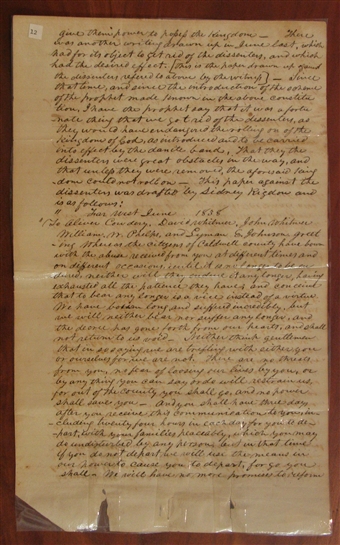 22
give them power to possess the Kingdom — There
was another writing drawn up in June last, which
had for its object to get rid of the dissenters, and which
had the desired effect. [this is the paper drawn up against
the dissenters refered to above by the writer] — Since
that time, and since the introduction of the scheme
of the prophet made known in the above constitu
tion, I have the prophet say that it was a fortu
nate thing that we got rid of the dissenters, as
they would have endangered the rolling on of the
Kingdom of God, as introduced and to be carried
into effect by the danite band, That they the
dissenters were great obstacles in the way, and
that unless they were removed, the aforesaid King
dom could not roll on — This paper against the
dissenters was drafted by Sidney Rigdon and
is as follows:
" Far West June 1838
To Oliver Cowdery, David Whitmer, John Whitmer
William W. Phelps, and Lyman E. Johnson, greet
ing Whereas the citizens of Caldwell county have born
with the abuse received from you at different times and
on different occasions, until it is no longer to be en
dured; neither will they endure it any longer, having
exhausted all the patience they have, and conceive
that to bear any longer is a vice instead of a virtue
We have borne long and suffered incredibly, but
we will neither bear nor suffer any longer, and
the decree has gone forth from our hearts, and shall
not return to us void — Neither think gentlemen
that in so saying we are trifling with either you
or ourselves for we are not. There are no threats
from you, no fear of loosing our lives by you, or
by any thing you can say or do will restrain us,
for out of the county you shall go, and no power
shall save you — And you shall have three days
after you receive this communication to you, in
cluding twenty four hours in each day for you to de-
part, with your families peaceably, which you may
do undisturbed by any person, but in that time
if you do not depart we will use the means in
our power to cause you to depart, for go you
shall — We will have no more promises to reform